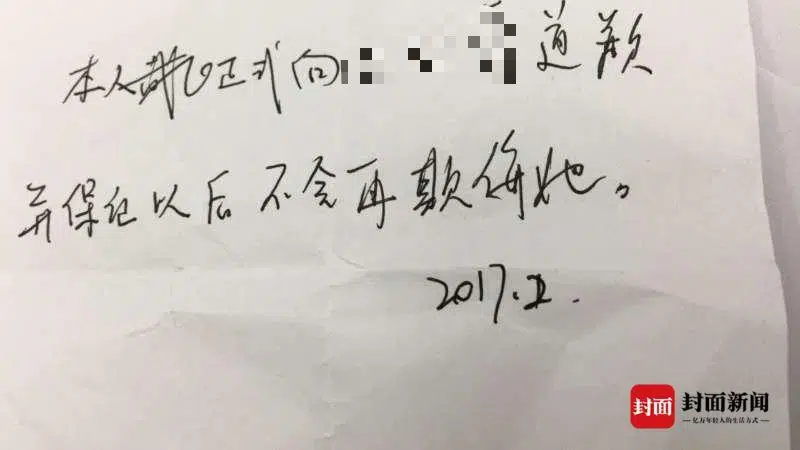 本人正式向道歉
并保证以后不会再欺侮她。
2017.
封面 封面新闻
— 亿万年轻人的生活方式 —